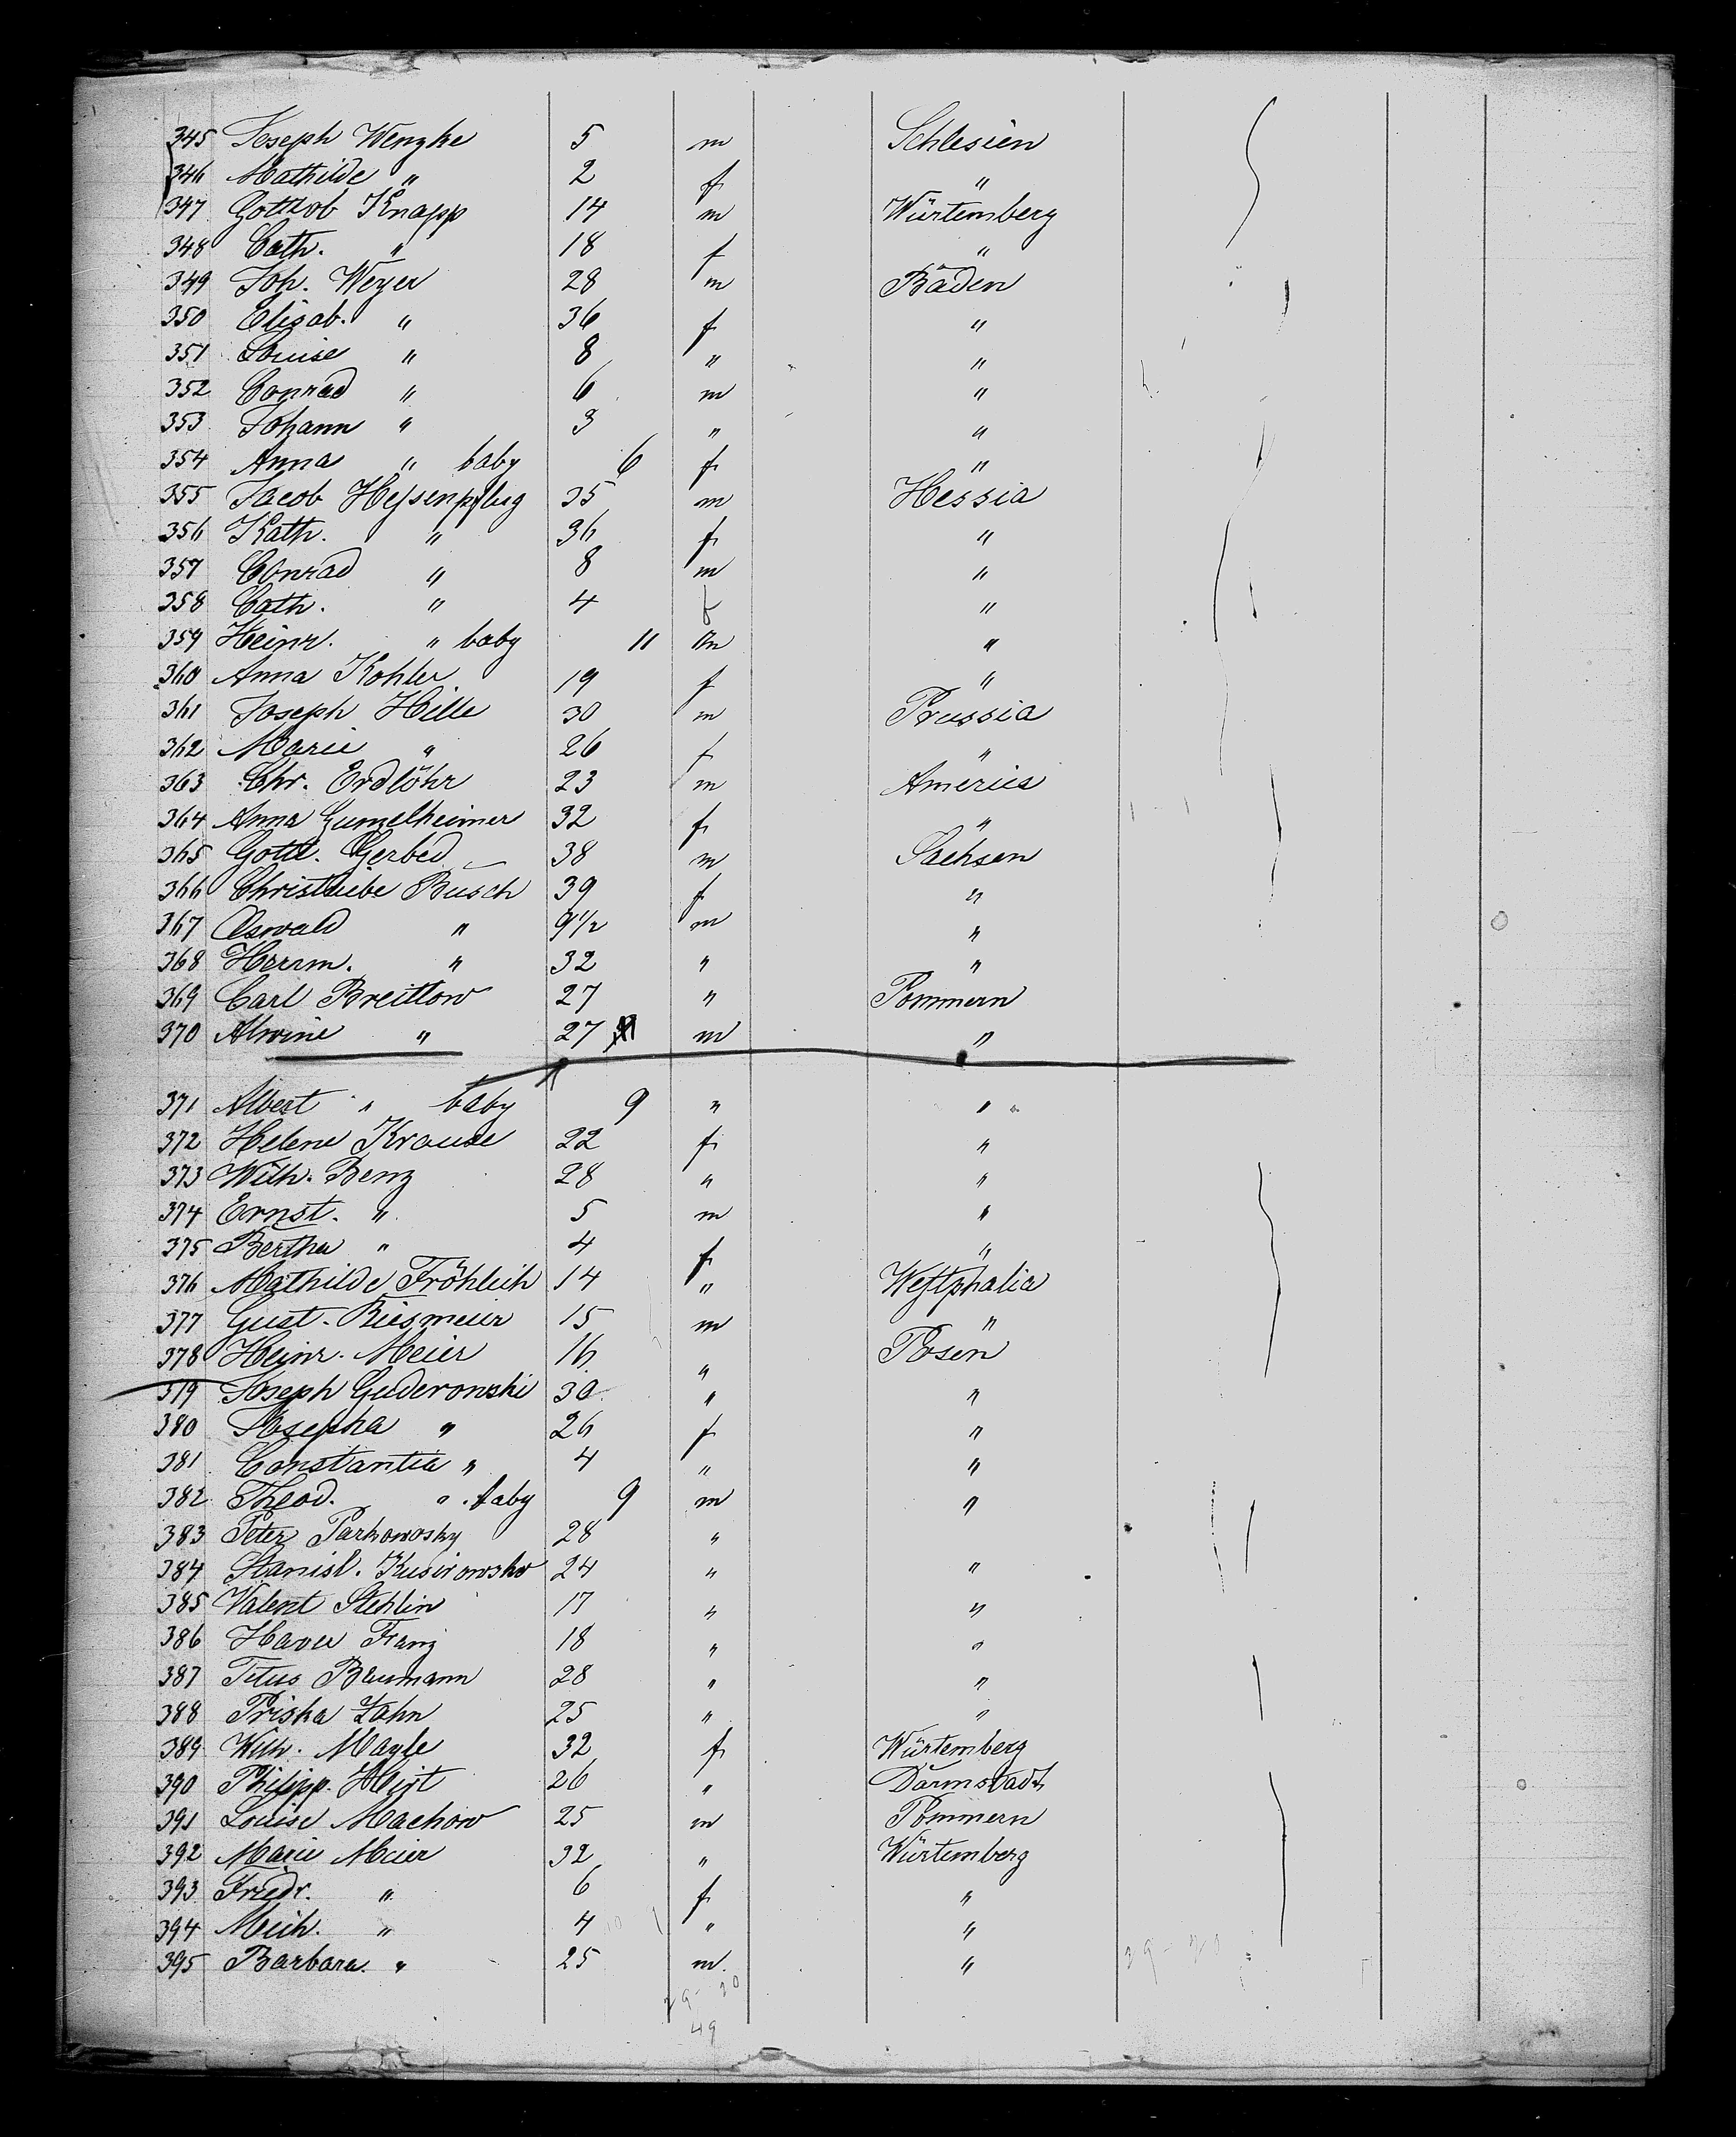 345 Joseph Wenzke 5 m Schlesien
346 Mathilde " 2 f "
347 Gottlob Knapp 14 m Würtemberg
348 Cath. " 18 f "
349 Joh. Weyer 28 m Baden
350 Elisab. " 36 f "
351 Louise " 8 " "
352 Conrad " 6 m "
353 Johann " 3 " "
354 Anna " baby 6 f "
355 Jacob Hessenpflug 35 m Hessia
356 Kath. " 36 f "
357 Conrad " 8 m "
358 Cath. " 4 f "
359 Heinr. " baby 11 m "
360 Anna Kohler 19 f "
361 Joseph Hille 30 m Prussia
362 Marie " 26 f "
363 Chr. Erdlöhr 23 m America
364 Anna Gunzelheimer 32 f "
365 Gottl. Gerbed 38 m Sachsen
366 Christliebe Busch 39 f "
367 Oswald " 9 1/2 m "
368 Herrm. " 32 " "
369 Carl Breitlow 27 " Pommern
370 Alwine " 27 m "
371 Albert " baby 9 " "
372 Helene Krause 22 f "
373 Wilh. Benz 28 " "
374 Ernst. " 5 m "
375 Bertha " 4 f "
376 Mathilde Fröhlich 14 " Westphalia
377 Gust. Biesmeier 15 m "
378 Heinr. Meier 16 " Posen
379 Joseph Guderonski 30 " "
380 Josepha " 26 f "
381 Constantia " 4 " "
382 Theod. " baby 9 m "
383 Peter Parkowosky 28 "
384 Stanisl. 24 " "
385 Valent Stehlin 17 " "
386 Xaver Franz 18 " "
387 Titus Baumann 28 " "
388 Priska Zahn 25 " "
389 Wilh. Mayle 32 f Würtemberg
390 Philipp. Hirt 26 " Darmstadt
391 Louise Machow 25 m Pommern
392 Marie Meier 32 " Würtemberg
393 Friedr. " 6 f "
394 Mich. " 4 " "
395 Barbara. " 25 m. "
29-20
49